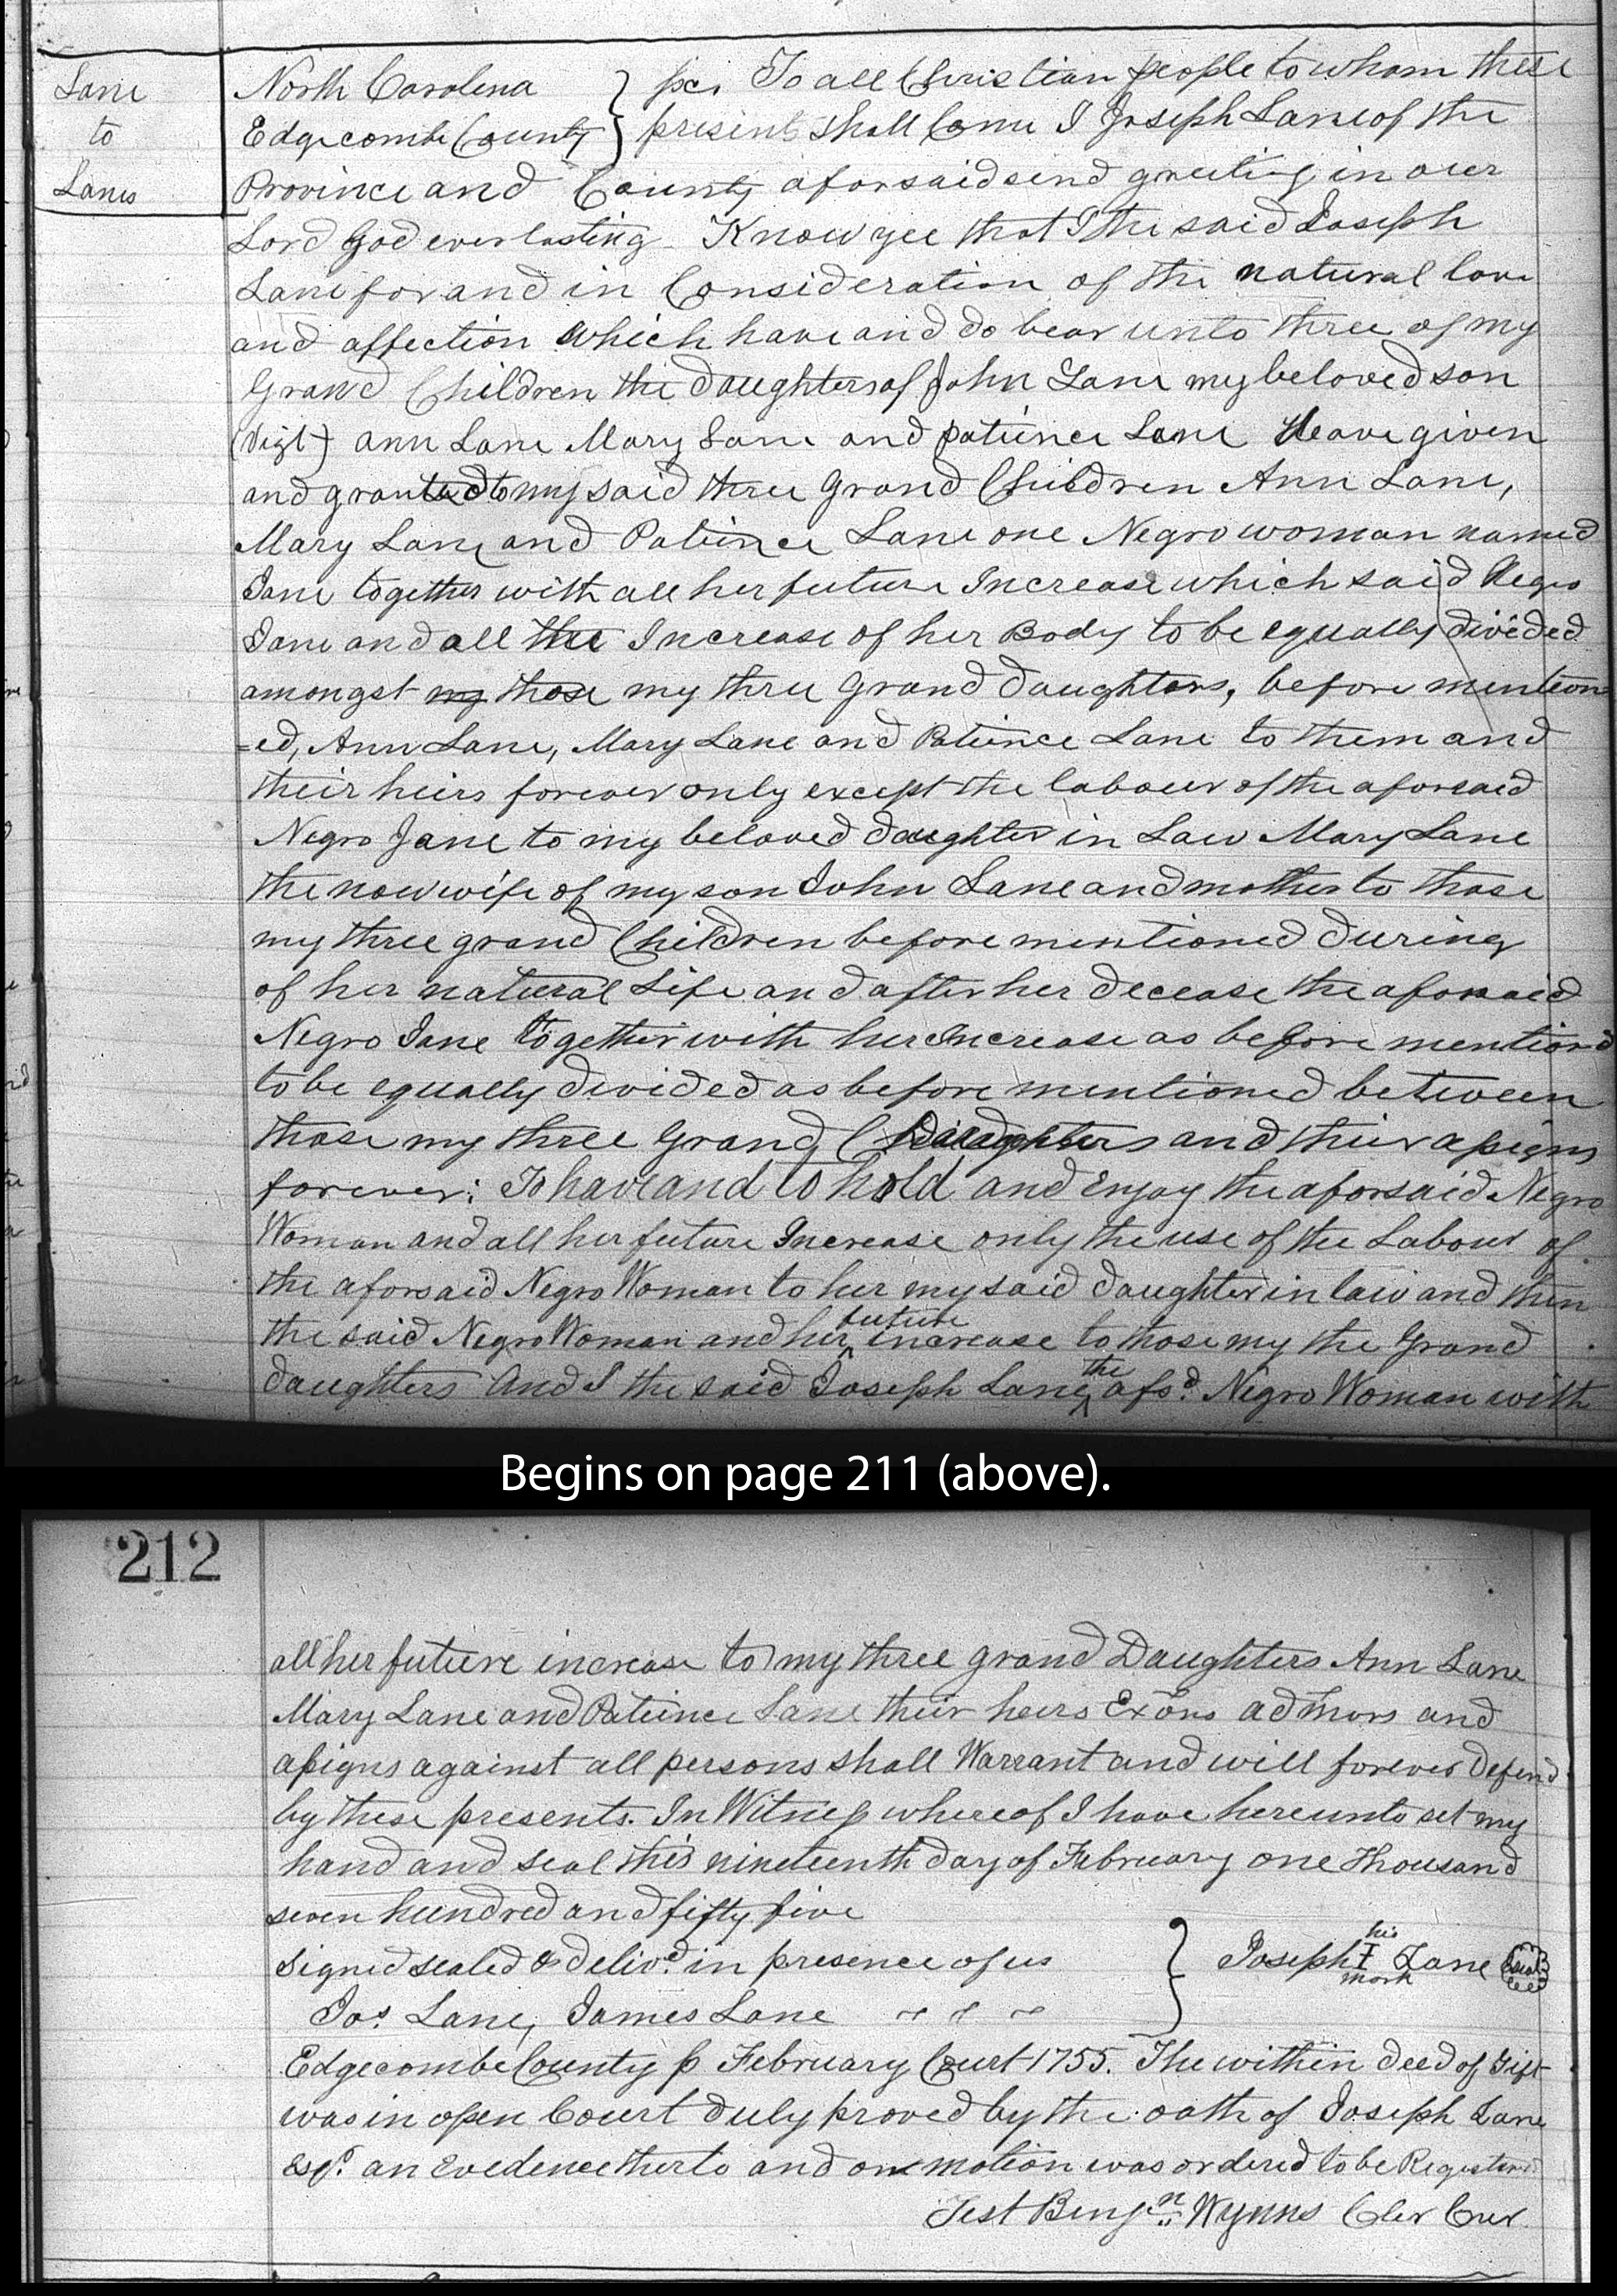 Lane
to
Lanes
North Carolina } ſc. To all Christian people to whom these
Edgecombe County } presents shall Come I Joseph Lane of the
Province and County aforsaid send greeting in our
Lord God everlasting Know yee that I the said Joseph
Lane for and in Consideration of the natural love
and affection which have and do bear unto three of my
Grand Children the daughters of John Lane my beloved son
(vizt) ann Lane Mary Lane and patience Lane Have given
and granted to my said three Grand Children Ann Lane,
Mary Lane and Patience Lane one Negro woman named
Jane together with all her future Increase which said Negro
Jane and all the Increase of her Body to be equally divided
amongst my those my three Grand daughters, before mention
=ed, Ann Lane, Mary Lane and Patience Lane to them and
their heirs forever only except the labour of the aforsaid
Negro Jane to my beloved daughter in Law Mary Lane
the now wife of my son John Lane and mother to those
my three grand Children before mentioned during
of her natural Life and after her decease the aforsaid
Negro Jane together with her Increase as before mentiond
to be equally divided as before mentioned between
those my three Grand Daughters and their aſsigns
forever: To have and to hold and Enjoy the aforsaid Negro
Woman and all her future Increase only the use of the Labour of
the aforsaid Negro Woman to her my said daughter in law and then
the said Negro Woman and her future increase to those my the Grand
daughters And I the said Joseph Lane the afsd. Negro Woman with
Begins on page 211 (above).
212
all her future increase to my three grand Daughters Ann Lane
Mary Lane and Patience Lane their heirs Exors admors and
aſsigns against all persons shall Warrant and will forever defend
by these presents. In Witneſs whereof I have hereunto set my
hand and seal this nineteenth day of February one Thousand
seven hundred and fifty five
Signed sealed & delivd. in presence of us } Joseph his I mark Lane seal
Jos. Lane, James Lane
Edgecombe County ſs February Court 1755. The within deed of Gift
was in open Court duly proved by the oath of Joseph Lane
Esqr. an evedence therto and on motion was ordered to be Registered
Test Benjn. Wynns Cler Cur